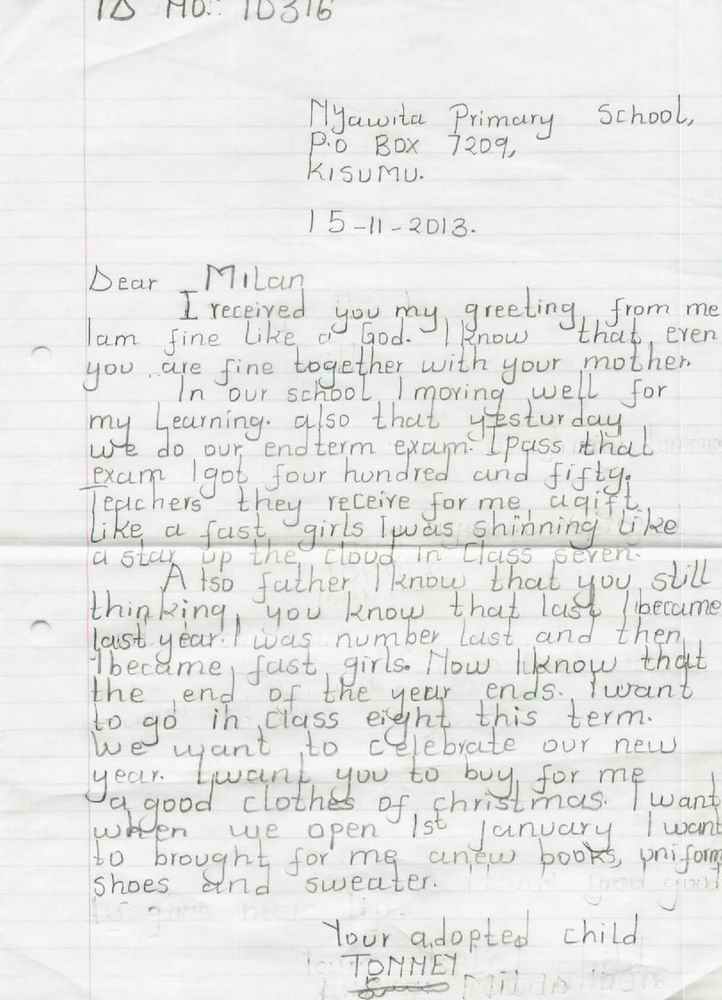 ID No: 10316
Nyawita Primary School,
P.o Box 7209,
KISUMU.
15-11-2013.
Dear Milan
I received you my greeting from me
Iam fine like a God. I know that even
you are fine together with your mother.
In our school I moving well for
my Learning. also that yesturday
we do our endterm exam. I pass that
exam I got four hundred and fifty.
Teachers they receive for me agift.
Like a fast girls I was shinning like
a star up the cloud in Class seven.
Also father I know that you still
thinking you know that last I became
last year. I was number last and then
I became fast girls. Now I know that
the end of the year ends. I want
to go in class eight this term.
We want to celebrate our new
year. I want you to buy for me
a good clothes of christmas. I want
when we open 1st january I want
to brought for me anew books, uniform
shoes and sweater.
Your adopted child
TONNEY